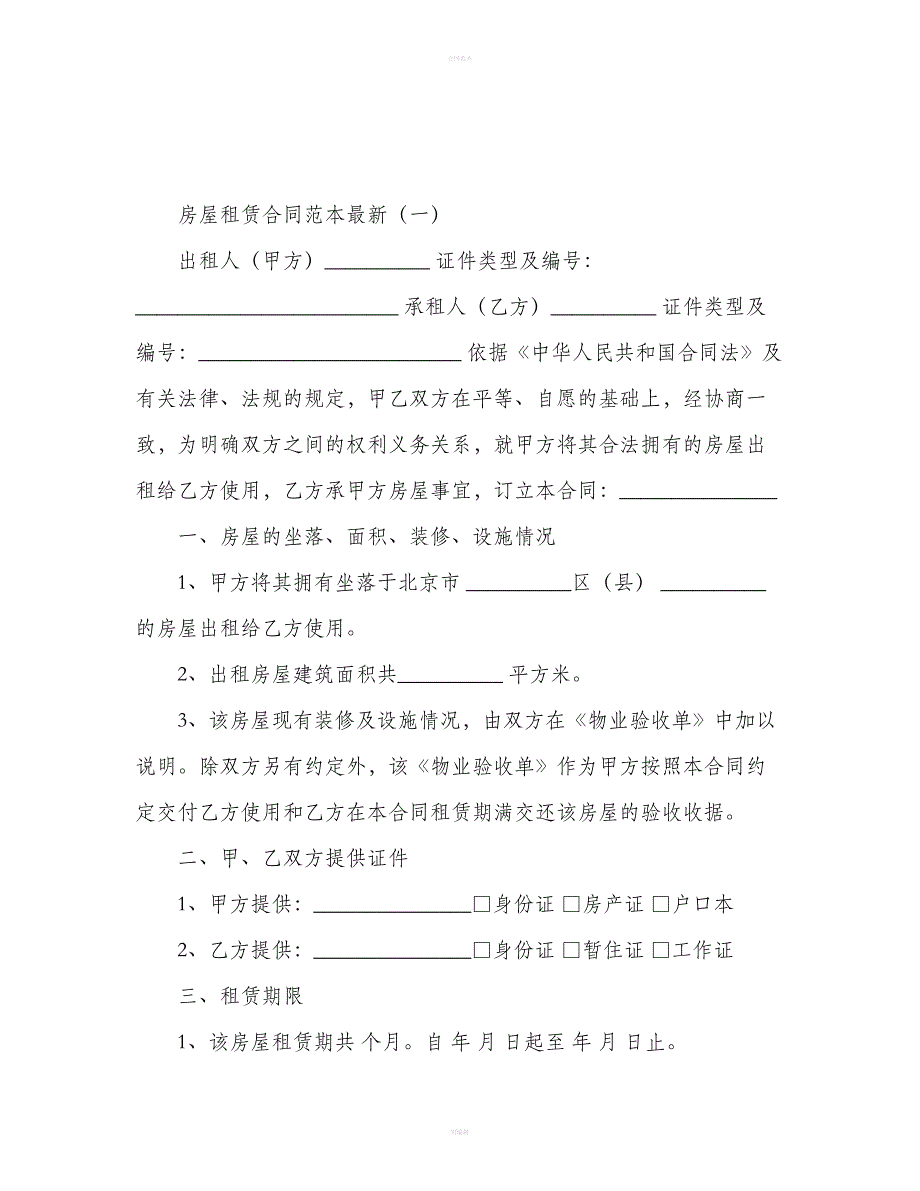 房屋租赁合同范本最新（一）
出租人（甲方）__________ 证件类型及编号：
_________________________ 承租人（乙方）__________ 证件类型及
编号：_________________________ 依据《中华人民共和国合同法》及
有关法律、法规的规定，甲乙双方在平等、自愿的基础上，经协商一
致，为明确双方之间的权利义务关系，就甲方将其合法拥有的房屋出
租给乙方使用，乙方承甲方房屋事宜，订立本合同：_______________
一、房屋的坐落、面积、装修、设施情况
1、甲方将其拥有坐落于北京市 __________区（县） __________
的房屋出租给乙方使用。
2、出租房屋建筑面积共__________ 平方米。
3、该房屋现有装修及设施情况，由双方在《物业验收单》中加以
说明。除双方另有约定外，该《物业验收单》作为甲方按照本合同约
定交付乙方使用和乙方在本合同租赁期满交还该房屋的验收收据。
二、甲、乙双方提供证件
1、甲方提供：_______________□身份证 □房产证 □户口本
2、乙方提供：_______________□身份证 □暂住证 □工作证
三、租赁期限
1、该房屋租赁期共 个月。自 年 月 日起至 年 月 日止。